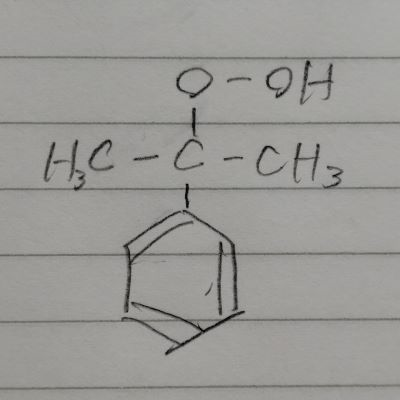 O-OH
H₃C-C-CH₃